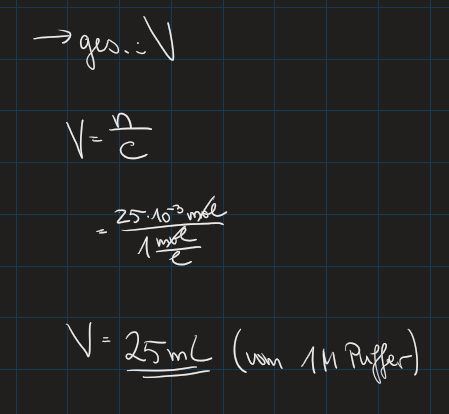 → ges.: V
V = n/c
= 25·10⁻³ mol / 1 mol/l
V = 25mL (vom 1M Puffer)